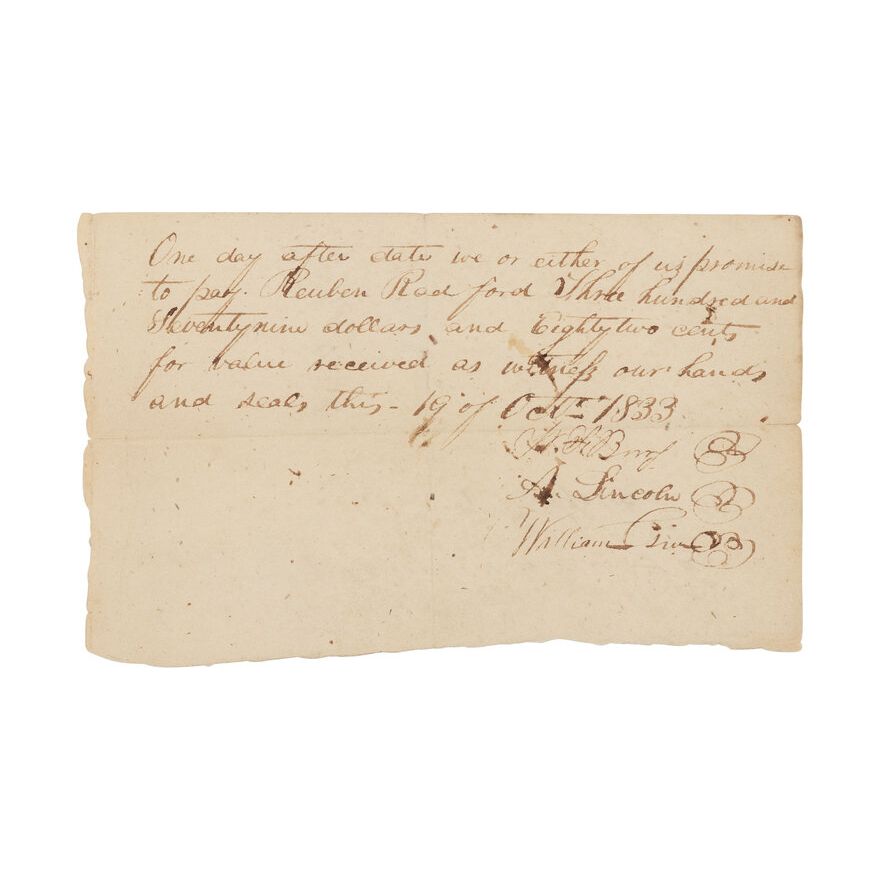 One day after date we or either of us promise
to pay Reuben Radford Three hundred and
Seventynine dollars and Eightytwo cents
for value received as witness our hands
and seals this - 19 of Octr 1833
A. Lincoln
William